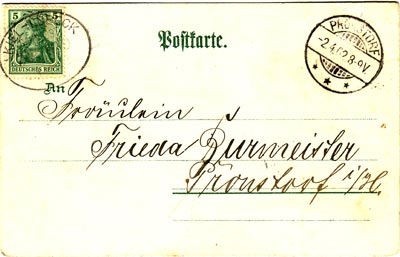 5
DEUTSCHES REICH
Postkarte.
PRONSTORF
8-9V.
An
Fräulein
Frieda Burmeister
Pronstorf i/H.